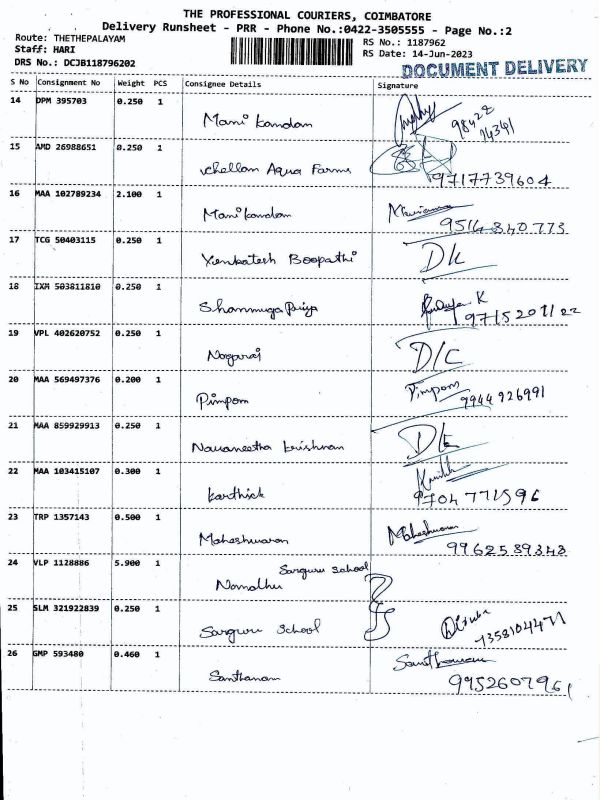 THE PROFESSIONAL COURIERS, COIMBATORE
Delivery Runsheet - PRR - Phone No.:0422-3505555 - Page No.:2
Route: THETHEPALAYAM
Staff: HARI
DRS No.: DCJB118796202
RS No.: 1187962
RS Date: 14-Jun-2023
DOCUMENT DELIVERY
S No Consignment No Weight PCS Consignee Details Signature
14 DPM 395703 0.250 1 Mani kandan 98428 14341
15 AMD 26988651 0.250 1 Vchellam Aqua Farms 9717739604
16 MAA 102789234 2.100 1 Mani kandan 9514 340 773
17 TCG 50403115 0.250 1 Venkatesh Boopathi
18 IXM 503811810 0.250 1 Shanmuga Priya K 9715201122
19 VPL 402620752 0.250 1 Nagaraj D/C
20 MAA 569497376 0.200 1 Pimpom Pimpom 9944 926991
21 MAA 859929913 0.250 1 Navaneetha krishnan
22 MAA 103415107 0.300 1 karthick 9704 771596
23 TRP 1357143 0.500 1 Maheshwaran Maheshwaran 9962589348
24 VLP 1128886 5.900 1 Sarguru School
25 SLM 321922839 0.250 1 Sarguru School 7358104471
26 GMP 593480 0.460 1 Santhanam Santhanam 9952607961